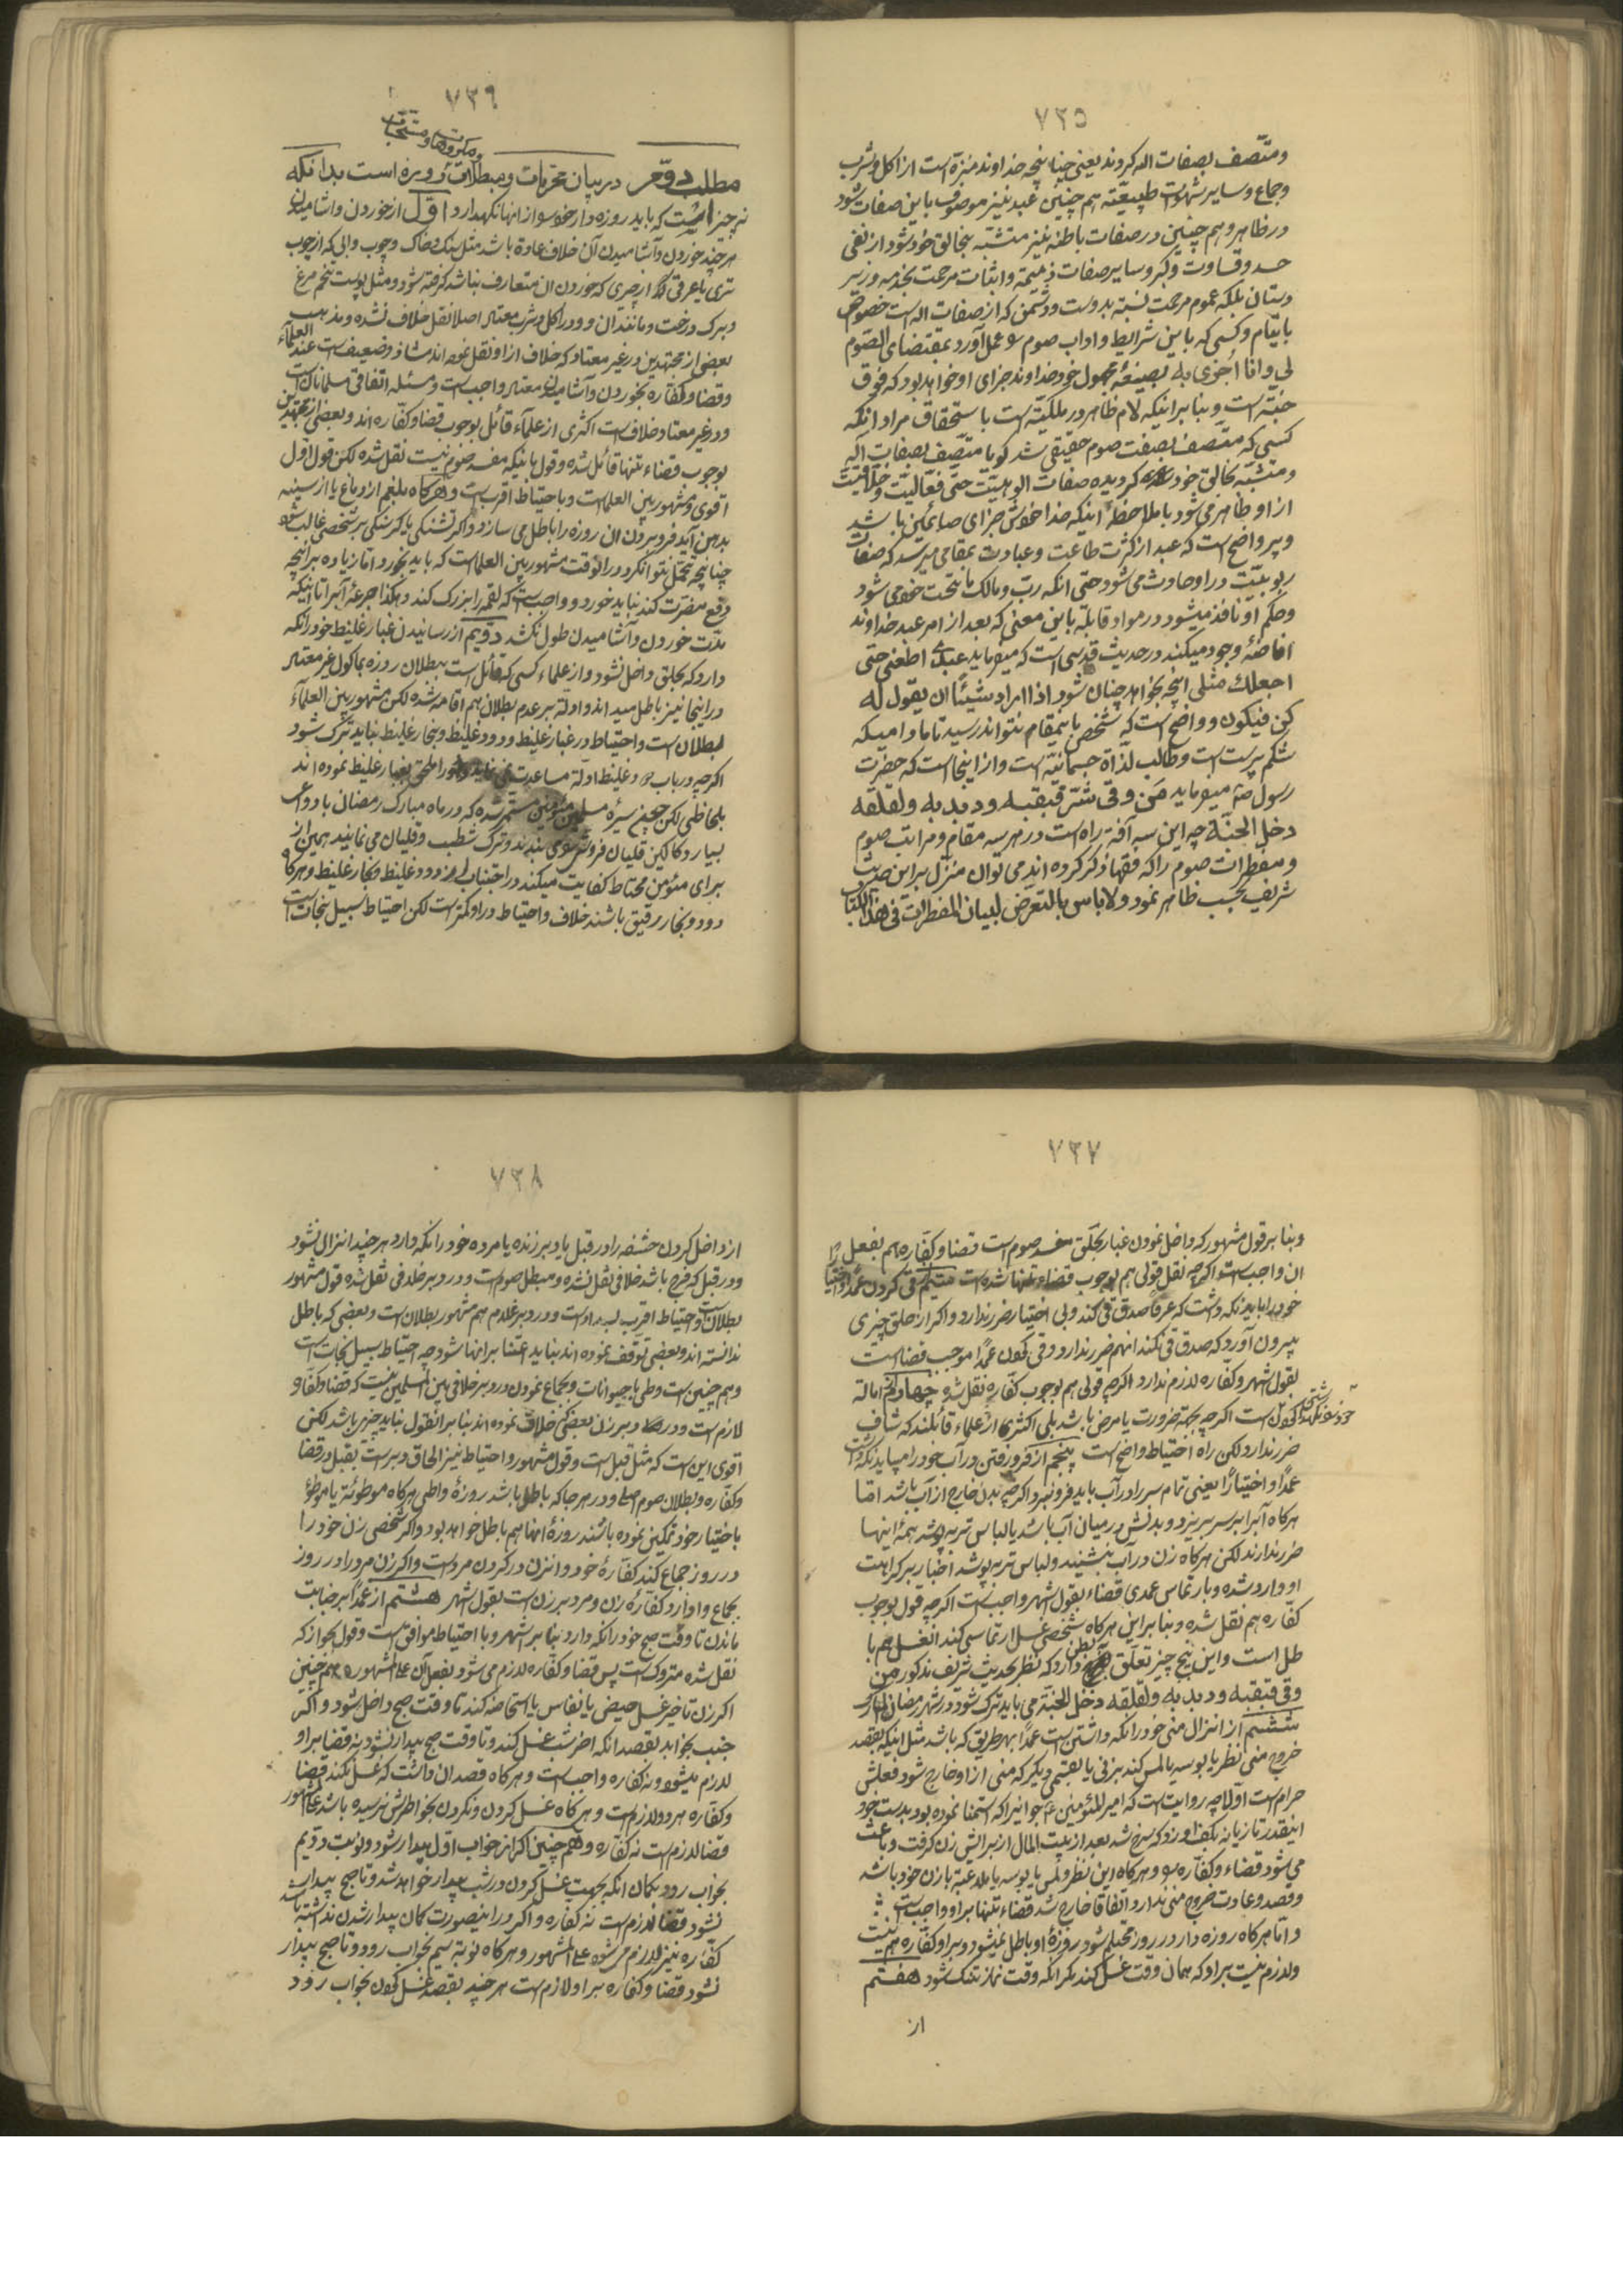 ٧٣٥
ومتّصف بصفات اله کردند یعنی چنانچه خداوند منزه است از اکل و شرب
وجماع وسایر شهوات طبیعیّه هم چنین عبد نیز موصوف باین صفات شود
در ظاهر و هم چنین در صفات باطنه نیز متشبّه بخالق خود شود از نفی
حسد وقساوت وکبر وسایر صفات ذمیمه واثبات مرحمت
دستان بلکه عموم مرحمت نسبة بدوست ودشمن که از صفات اله است خصوص
باینمقام وکسی که باین شرایط واداب صوم عمل آورد بمقتضای الصّوم
لي وانا اُجزی به بصیغهٔ مجهول خود خداوند جزای او خواهد بود که فوق
جنّة است وبنا بر اینکه لام ظاهر در ملکیّة است با ستحقاق مراد انکه
کسی که متّصف بصفت صوم حقیقی شد کویا متّصف بصفات آله
ومتشبّه بخالق خود کردیده صفات الوهیّت حتّی فعّالیّت وخلّاقیّت
از او ظاهر می شود با ملاحظه اینکه خدا خودش جزای صایمین باشد
وپر واضح است که عبد از کثرت طاعت وعبادت بمقامی میرسد که صفات
ربوبیّت در او حادث می شود حتی انکه ربّ ومالک ما تحت خود می شود
وحکم او نافذ میشود در مواد قابله باین معنی که بعد از امر عبد خداوند
افاضهٔ وجود میکند در حدیث قدسی است که میفرماید عبدی اطعنی حتّی
اجعلك مثلی انچه بخواهد چنان شود اذا اراد شیئًا ان یقول له
کن فیکون و واضح است که شخص باینمقام نتواند رسید تا مادامیکه
شکم پرست است وطالب لذّاة جسمانیّه است واز اینجا است که حضرت
رسول ص میفرماید مَن وقی شرّ قبقبه ودبدبه ولقلقه
دخل الجنّة چه این سه آفة راه است در هر سه مقام ومراتب صوم
ومفطرات صوم را که فقها ذکر کرده اند می توان منزّل بر این حدیث
شریف بحسب ظاهر نمود ولا باس بالتعرض لبیان المفطرات فی هذا الکتاب
٧٣٦
ومکروهات ومستحبّات
مطلب دوّم در بیان محرّمات ومبطلات روزه است بدانکه
نه چیز است که باید روزه دار خود را از انها نکهدارد اوّل از خوردن واشامیدن
هر چند خوردن وآشامیدن آن خلاف عادة باشد مثل سنک وخاک وچوب وابی که از چوب
تری یا عرقی که از چیزی که خوردن ان متعارف نباشد کرفته شود ومثل پوست تخم مرغ
وبرک درخت ومانند ان ودر اکل وشرب معتاد اصلا نقل خلاف نشده ومذهب
بعضی از مجتهدین در غیر معتاد که خلاف از او نقل نموده اند شاذ وضعیف است عند العلماء
وقضا وکفّاره بخوردن وآشامیدن معتاد واجب است ومسئله اتّفاقی مسلمانان است
ودر غیر معتاد خلاف است اکثری از علمآء قائل بوجوب قضا وکفّاره اند وبعضی از مجتهدین
بوجوب قضاء تنها قائل شده وقول باینکه مفسد صوم نیست نقل شده لکن قول اوّل
اقوی ومشهور بین العلما است وباحتیاط اقرب است وهرکاه بلغم از دماغ یا از سینه
بدهن آید فرو بردن ان روزه را باطل می سازد واکر تشنکی یا کرسنکی بر شخصی غالب شود
چنانچه تحمّل نتواند کرد در انوقت مشهور بین العلما است که باید بخورد امّا زیاده بر انچه
رفع مضرّت کند نباید خورد و واجب است که لقمه را بزرک نکند وهکذا جرعهٔ آب را تا اینکه
مدّت خوردن وآشامیدن طول نکشد دویّم از رسانیدن غبار غلیظ خود را نکه
دارد که بحلق داخل نشود واز علماء کسی که قائل است ببطلان روزه بماکول غیر معتاد
در اینجا نیز باطل میداند وادلّه بر عدم بطلان هم اقامه شده لکن مشهور بین العلمآء
بطلان است واحتیاط در غبار غلیظ ودود غلیظ وبخار غلیظ نباید ترک شود
اکرچه در باب دود غلیظ ادلّه مساعدت نمی نماید وانرا ملحق بغبار غلیظ نموده اند
بلحاظی لکن سیرهٔ مسلمین مؤمنین مستمر شده که در ماه مبارک رمضان
بسیار دکاکین قلیان فروشی می بندند وترک شطب وقلیان می نمایند همین از
برای مؤمن محتاط کفایت میکند در اجتناب از دود غلیظ وبخار غلیظ وهرکاه
دود وبخار رقیق باشند خلاف واحتیاط در او کمتر است لکن احتیاط سبیل نجات است
٧٣٧
وبنا بر قول مشهور که داخل نمودن غبار بحلق مفسد صوم است قضا وکفّاره هم بفعل
ان واجب است اکرچه نقل قولی هم بوجوب قضاء تنها شده است سیّم قی کردن عمدًا واختیارًا
خود را باید نکه داشت که عرفا صدق قی کند وبی اختیار ضرر ندارد واکر از حلق چیزی
بیرون آورد که صدق قی نکند انهم ضرر ندارد وقی کردن عمدًا موجب قضا است
بقول اشهر وکفّاره لازم ندارد اکرچه قولی هم بوجوب کفّاره نقل شده چهارم اماله
است اکرچه بجهة ضرورت یا مرض باشد بلی اکثری از علماء قائلند که شاف
ضرر ندارد لکن راه احتیاط واضح است پنجم از فرو رفتن در آب خود را میباید نکه داشت
عمدًا واختیارًا یعنی تمام سر را در آب باید فرو نبرد اکرچه بدن خارج از آب باشد امّا
هرکاه آب را بر سر بریزد وبدنش در میان آب باشد یا لباس تر بپوشد همهٔ اینها
ضرر ندارند لکن هرکاه زن در آب بنشیند ولباس تر بپوشد اخبار بر کراهت
او وارد شده وبارتماس عمدی قضاء بقول اشهر واجب است اکرچه قول بوجوب
کفّاره هم نقل شده وبنا بر این هرکاه شخصی غسل ارتماسی کند انغسل هم با
طل است واین پنج چیز تعلّق ببطن دارد که نظر بحدیث شریف مذکور من
وقی قبقبه ودبدبه ولقلقه دخل الجنّة می باید ترک شود در شهر رمضان المبارک
ششم از انزال منی خود را نکه داشتن است عمدًا بهر طریق که باشد مثل اینکه بقصد
خروج منی نظر یا بوسه یا لمس کند بزنی یا بقسمی دیکر که منی از او خارج شود فعلش
حرام است اوّلا چه روایت است که امیر المؤمنین ع جوانیرا که استمنا نموده بود بدست خود
اینقدر تازیانه بکف او زد که سرخ شد بعد از بیت المال از برایش زن کرفت وباعث
می شود قضاء وکفّاره را وهرکاه این نظر ولمس یا بوسه یا ملاعبة با زن خود باشد
وقصد وعادت خروج منی ندارد اتّفاقا خارج شد قضاء تنها بر او واجب است
وامّا هرکاه روزه دار در روز محتلم شود روزهٔ او باطل نمیشود وبر او کفّاره هم نیست
ولازم نیست بر او که همان وقت غسل کند مکر انکه وقت نماز تنک شود هفتم
از
٧٣٨
از داخل کردن حشفه را در قبل یا دبر زنده یا مرده خود را نکه دارد هر چند انزال نشود
ودر قبل که فرج باشد خلافی نقل نشده ومبطل صوم است ودر دبر خلافی نقل شده قول مشهور
بطلان است واحتیاط اقرب بسداد است ودر دبر غلام هم مشهور بطلان است وبعضی که باطل
ندانسته اند وبعضی توقّف نموده اند نباید اعتنا بر انها شود چه احتیاط سبیل نجات است
وهم چنین است وطی با حیوانات وبجماع نمودن در دبر خلافی بین المسلمین نیست که قضا وکفّاره
لازم است ودر دبر زن بعضی خلاف نموده اند بنا بر انقول نباید چیزی باشد لکن
اقوی این است که مثل قبل است وقول مشهور واحتیاط نیز الحاق دبر است بقبل در قضا
وکفّاره وبطلان صوم ودر هر جا که باطل باشد روزهٔ واطی هرکاه موطوئة یا موطوء
باختیار خود تمکین نموده باشند روزهٔ انها هم باطل خواهد بود واکر شخصی زن خود را
در روز جماع کند کفّارهٔ خود وانزن در کردن مرد است واکر زن مرد را در روز
بجماع وادارد کفّارهٔ زن ومرد بر زن است بقول اشهر هشتم از عمدًا بر جنابت
ماندن تا وقت صبح خود را نکه دارد بنا بر اشهر وبا احتیاط موافق است وقول بجواز که
نقل شده متروک است پس قضا وکفّاره لازم می شود بفعل آن علی المشهور وهم چنین
اکر زن تاخیر غسل حیض یا نفاس یا استحاضه کند تا وقت صبح داخل شود واکر
جنب بخوابد بقصد انکه اخر شب غسل کند وتا وقت صبح بیدار نشود نه قضا بر او
لازم میشود ونه کفّاره واجب است وهرکاه قصد ان داشت که غسل نکند قضا
وکفّاره هر دو لازم است وهرکاه غسل کردن ونکردن بخواطرش نرسیده باشد علی المشهور
قضا لازم است نه کفّاره وهم چنین اکر از خواب اوّل بیدار شود ونوبت دویّم
بخواب رود بکمان انکه بجهت غسل کردن در شب بیدار خواهد شد وتا صبح بیدار
نشود قضا لازم است نه کفّاره واکر در اینصورت کمان بیدار شدن نداشته باشد
کفّاره نیز لازم می شود علی المشهور وهرکاه نوبة سیّم بخواب رود وتا صبح بیدار
نشود قضا وکفّاره بر او لازم است هر چند بقصد غسل کردن بخواب رود